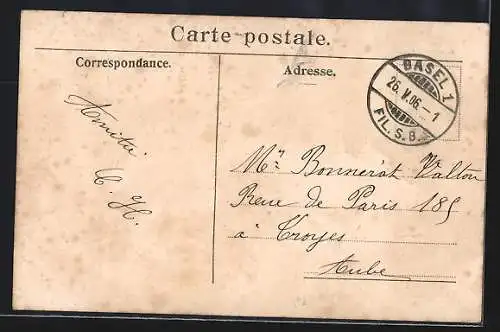 Carte postale.
Correspondance.
Adresse.
BASEL 1
26.V.06.-1
FIL. S. B.
Amitié
C. H.
Mr Bonnerot Valton
Rue de Paris 185
à Troyes
Aube